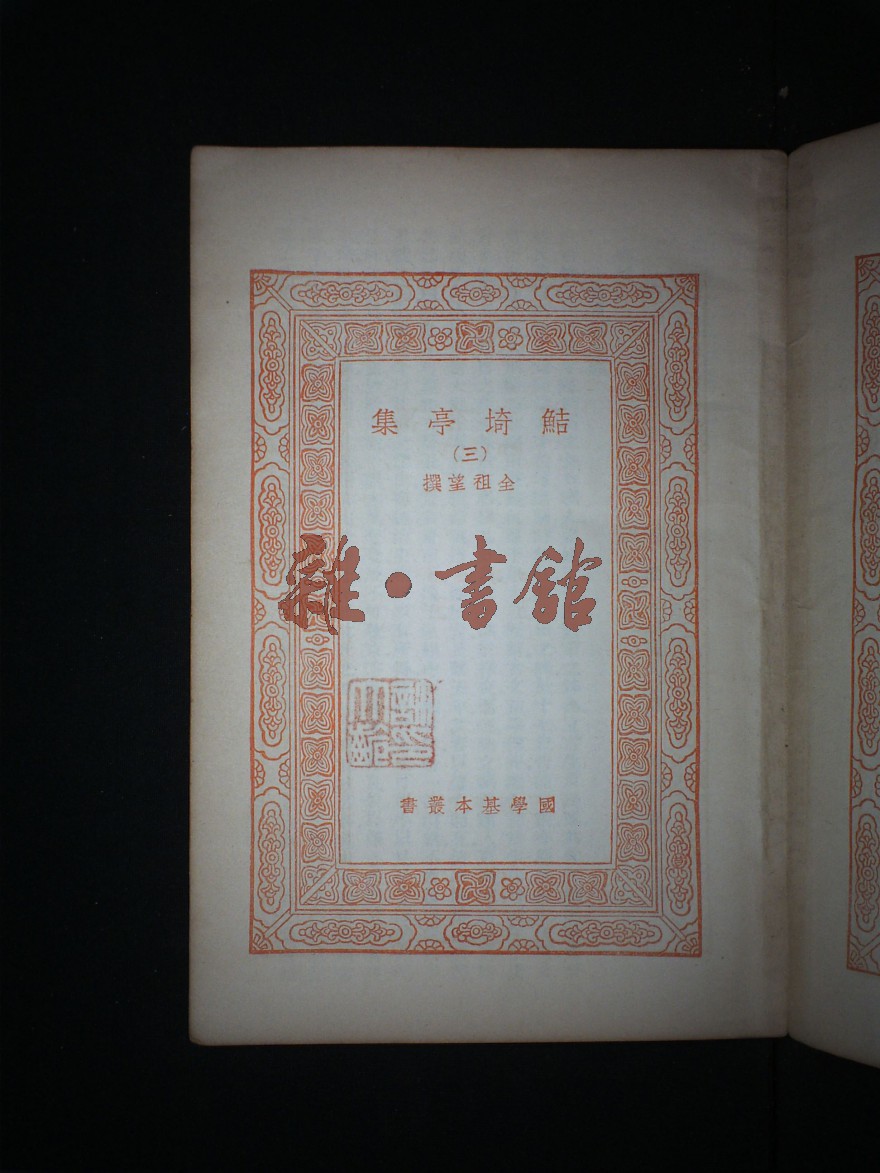 鮚埼亭集
（三）
全祖望撰
雜·書館
國學基本叢書